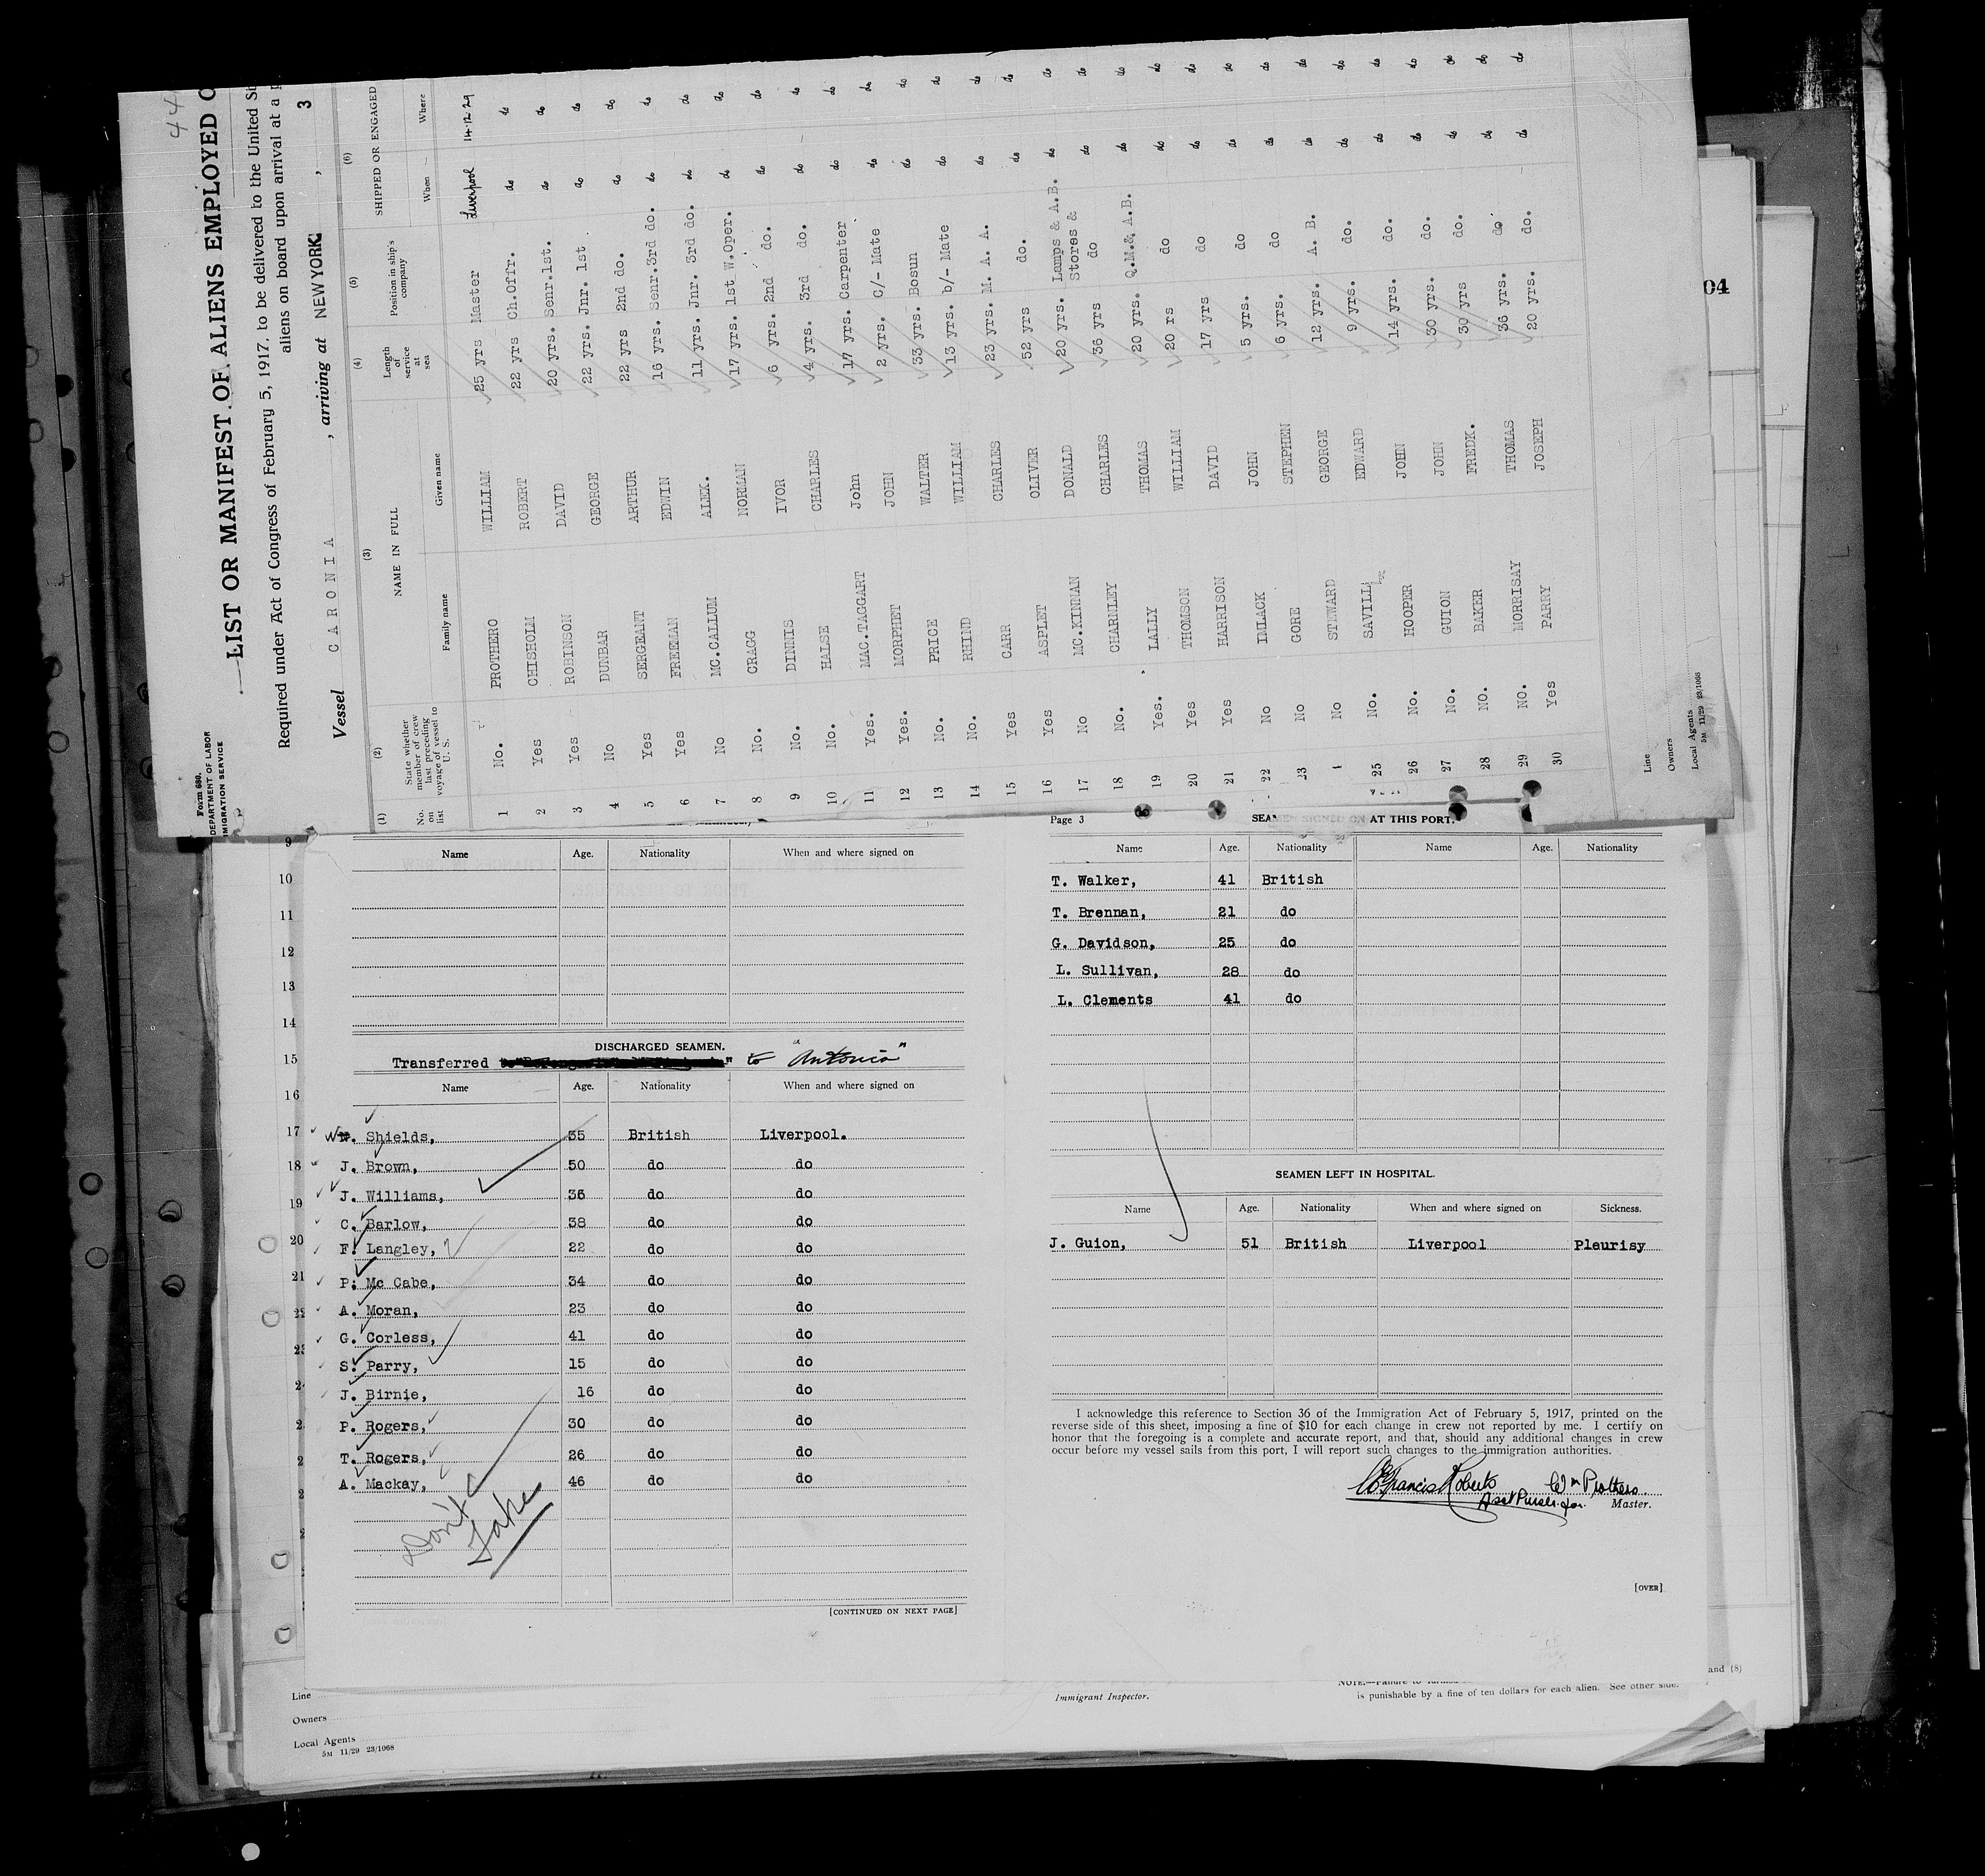 44
Form 680.
DEPARTMENT OF LABOR
IMMIGRATION SERVICE
LIST OR MANIFEST OF ALIENS EMPLOYED O
Required under Act of Congress of February 5, 1917, to be delivered to the United St
aliens on board upon arrival at a p
Vessel CARONIA , arriving at NEW YORK , 3
(1) (2) (3) (4) (5) (6)
No. on list State whether member of crew last preceding voyage of vessel to U. S. NAME IN FULL Length of service at sea Position in ship's company SHIPPED OR ENGAGED
Family name Given name When Where
1 No. PROTHERO WILLIAM 25 yrs Master Liverpool 14-12-29
2 Yes CHISHOLM ROBERT 22 yrs Ch.Offr. do do
3 Yes ROBINSON DAVID 20 yrs. Senr.1st. do do
4 No DUNBAR GEORGE 22 yrs. Jnr. 1st do do
5 Yes SERGEANT ARTHUR 22 yrs 2nd do. do do
6 Yes FREEMAN EDWIN 16 yrs. Senr.3rd do. do do
7 No MC.CALLUM ALEX. 11 yrs. Jnr. 3rd do. do do
8 No. CRAGG NORMAN 17 yrs. 1st W.Oper. do do
9 No. DINNIS IVOR 6 yrs. 2nd do. do do
10 No. HALSE CHARLES 4 yrs. 3rd do. do do
11 Yes. MAC.TAGGART John 17 yrs. Carpenter do do
12 Yes. MORPHET JOHN 2 yrs. C/- Mate do do
13 No. PRICE WALTER 33 yrs. Bosun do do
14 No. RHIND WILLIAM 13 yrs. b/- Mate do do
15 Yes CARR CHARLES 23 yrs. M. A. A. do do
16 Yes ASPLET OLIVER 52 yrs do. do do
17 No MC.KINNAN DONALD 20 yrs. Lamps & A.B. do do
Stores &
18 No. CHARNLEY CHARLES 36 yrs do do do
19 Yes. LALLY THOMAS 20 yrs. Q.M.& A.B. do do
20 Yes THOMSON WILLIAM 20 rs do do do
21 Yes HARRISON DAVID 17 yrs do do do
22 No IMLACK JOHN 5 yrs. do do do
23 No GORE STEPHEN 6 yrs. do do do
No STEWARD GEORGE 12 yrs. A. B. do do
25 No. SAVILL EDWARD 9 yrs. do. do do
26 No. HOOPER JOHN 14 yrs. do. do do
27 No. GUION JOHN 30 yrs. do. do do
28 NO. BAKER FREDK. 30 yrs do. do do
29 NO. MORRISAY THOMAS 36 yrs. do do do
30 Yes PARRY JOSEPH 20 yrs. do. do do
Line
Owners
Local Agents
5M 11/29 23/1068
04
9
10
11
12
13
14
15
16
17
18
19
20
21
Name Age. Nationality When and where signed on
DISCHARGED SEAMEN.
Transferred to "Antonia"
Name Age. Nationality When and where signed on
W. Shields, 35 British Liverpool.
J. Brown, 50 do do
J. Williams, 36 do do
C. Barlow, 38 do do
F. Langley, 22 do do
P. Mc Cabe, 34 do do
A. Moran, 23 do do
G. Corless, 41 do do
S. Parry, 15 do do
J. Birnie, 16 do do
P. Rogers, 30 do do
T. Rogers, 26 do do
A. Mackay, 46 do do
Don't
Take
[CONTINUED ON NEXT PAGE]
Page 3
SEAMEN SIGNED ON AT THIS PORT.
Name Age. Nationality Name Age. Nationality
T. Walker, 41 British
T. Brennan, 21 do
G. Davidson, 25 do
L. Sullivan, 28 do
L. Clements 41 do
SEAMEN LEFT IN HOSPITAL.
Name Age. Nationality When and where signed on Sickness.
J. Guion, 51 British Liverpool Pleurisy
I acknowledge this reference to Section 36 of the Immigration Act of February 5, 1917, printed on the
reverse side of this sheet, imposing a fine of $10 for each change in crew not reported by me. I certify on
honor that the foregoing is a complete and accurate report, and that, should any additional changes in crew
occur before my vessel sails from this port, I will report such changes to the immigration authorities.
Francis Roberts Wm Prothero
Asst Purser for Master.
[OVER]
Line
Owners
Local Agents
5M 11/29 23/1068
Immigrant Inspector.
and (8)
NOTE.—Failure to furnish
is punishable by a fine of ten dollars for each alien. See other side.